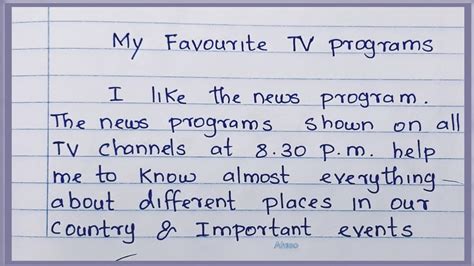 My Favourite TV programs
I like the news program.
The news programs shown on all
TV channels at 8.30 p.m. help
me to know almost everything
about different places in our
Country & Important events